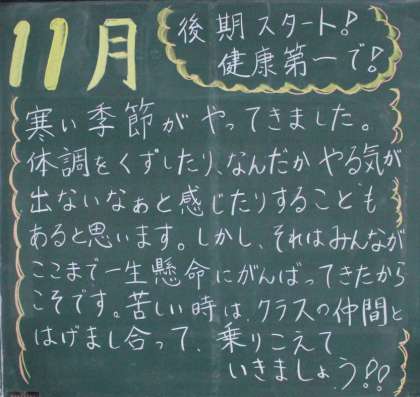 11月
後期スタート!
健康第一で!
寒い季節がやってきました。
体調をくずしたり、なんだかやる気が
出ないなぁと感じたりすることも
あると思います。しかし、それはみんなが
ここまで一生懸命にがんばってきたから
こそです。苦しい時は、クラスの仲間と
はげまし合って、乗りこえて
いきましょう!!